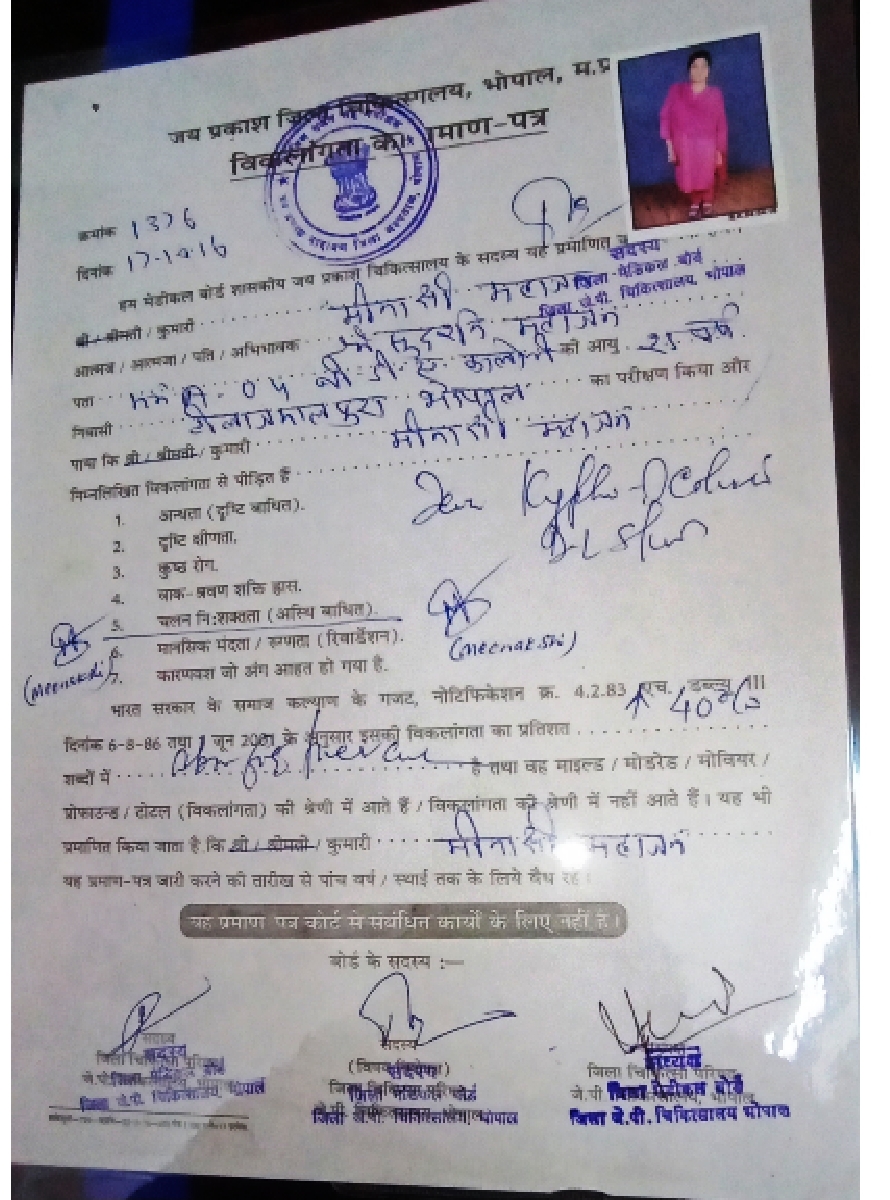 जय प्रकाश जिला चिकित्सालय, भोपाल, म.प्र
विकलांगता का प्रमाण-पत्र
क्रमांक 1376
दिनांक 17-10-16
हम मेडीकल बोर्ड शासकीय जय प्रकाश चिकित्सालय के सदस्य यह प्रमाणित
सदस्य
जिला मेडिकल बोर्ड
जिला जे.पी. चिकित्सालय, भोपाल
श्री / श्रीमती / कुमारी मीनाक्षी महाजन
आत्मज / आत्मजा / पति / अभिभावक सुदर्शन महाजन
पता 04 कालोनी की आयु 25 वर्ष
निवासी भोपाल का परीक्षण किया और
पाया कि श्री / श्रीमती / कुमारी मीनाक्षी महाजन
निम्नलिखित विकलांगता से पीड़ित हैं
1. अन्धता (दृष्टि बाधित).
2. दृष्टि क्षीणता.
3. कुष्ठ रोग.
4. वाक-श्रवण शक्ति ह्रास.
5. चलन नि:शक्तता (अस्थि बाधित).
6. मानसिक मंदता / रुग्णता (रिटार्डेशन).
(Meenakshi) (Meenakshi)
7. कारणवश जो अंग आहत हो गया है.
भारत सरकार के समाज कल्याण के गजट, नोटिफिकेशन क्र. 4.2.83 एच. डब्ल्यू III
दिनांक 6-8-86 तथा 1 जून 2001 के अनुसार इसकी विकलांगता का प्रतिशत 40%
शब्दों में है तथा वह माइल्ड / मोडरेड / मोवियर /
प्रोफाउन्ड / टोटल (विकलांगता) की श्रेणी में आते हैं / विकलांगता की श्रेणी में नहीं आते हैं। यह भी
प्रमाणित किया जाता है कि श्री / श्रीमती / कुमारी मीनाक्षी महाजन
यह प्रमाण-पत्र जारी करने की तारीख से पांच वर्ष / स्थाई तक के लिये वैध रहे।
यह प्रमाण पत्र कोर्ट से संबंधित कार्यो के लिए नहीं है।
बोर्ड के सदस्य :—
सदस्य
जिला मेडिकल बोर्ड
जिला जे.पी. चिकित्सालय, भोपाल
सदस्य
(विषय विशेषज्ञ)
जिला मेडिकल बोर्ड
जिला जे.पी. चिकित्सालय, भोपाल
अध्यक्ष
जिला मेडीकल बोर्ड
जिला जे.पी. चिकित्सालय भोपाल